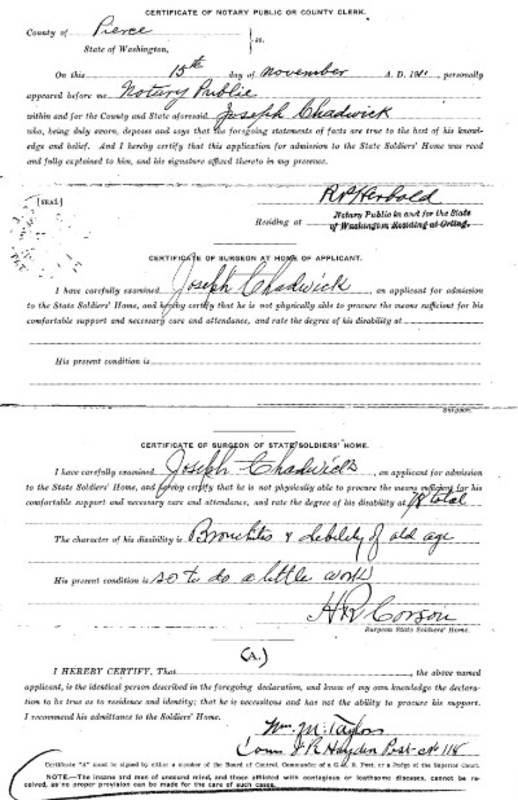 CERTIFICATE OF NOTARY PUBLIC OR COUNTY CLERK.
County of Pierce
State of Washington, } ss.
On this 15th day of November A. D. 191 , personally
appeared before me Notary Public
within and for the County and State aforesaid Joseph Chadwick
who, being duly sworn, deposes and says that the foregoing statements of facts are true to the best of his knowl-
edge and belief. And I hereby certify that this application for admission to the State Soldiers' Home was read
and fully explained to him, and his signature affixed thereto in my presence.
[SEAL]
Herbold
Residing at Notary Public in and for the State
of Washington Residing at Orting.
CERTIFICATE OF SURGEON AT HOME OF APPLICANT.
I have carefully examined Joseph Chadwick, an applicant for admission
to the State Soldiers' Home, and hereby certify that he is not physically able to procure the means sufficient for his
comfortable support and necessary care and attendance, and rate the degree of his disability at
His present condition is
Surgeon.
CERTIFICATE OF SURGEON OF STATE SOLDIERS' HOME.
I have carefully examined Joseph Chadwick, an applicant for admission
to the State Soldiers' Home, and hereby certify that he is not physically able to procure the means sufficient for his
comfortable support and necessary care and attendance, and rate the degree of his disability at 7/8 total
The character of his disability is Bronchitis & debility of old age
His present condition is so to do a little work
H R Corson
Surgeon State Soldiers' Home.
(A.)
I HEREBY CERTIFY, That , the above named
applicant, is the identical person described in the foregoing declaration, and know of my own knowledge the declara-
tion to be true as to residence and identity; that he is necessitous and has not the ability to procure his support.
I recommend his admittance to the Soldiers' Home.
Wm. M. Taylor
Com. J R Hayden Post No 114
Certificate "A" must be signed by either a member of the Board of Control, Commander of a G. A. R. Post, or a Judge of the Superior Court.
NOTE.—The insane and men of unsound mind, and those afflicted with contagious or loathsome diseases, cannot be re-
ceived, as no proper provision can be made for the care of such cases.